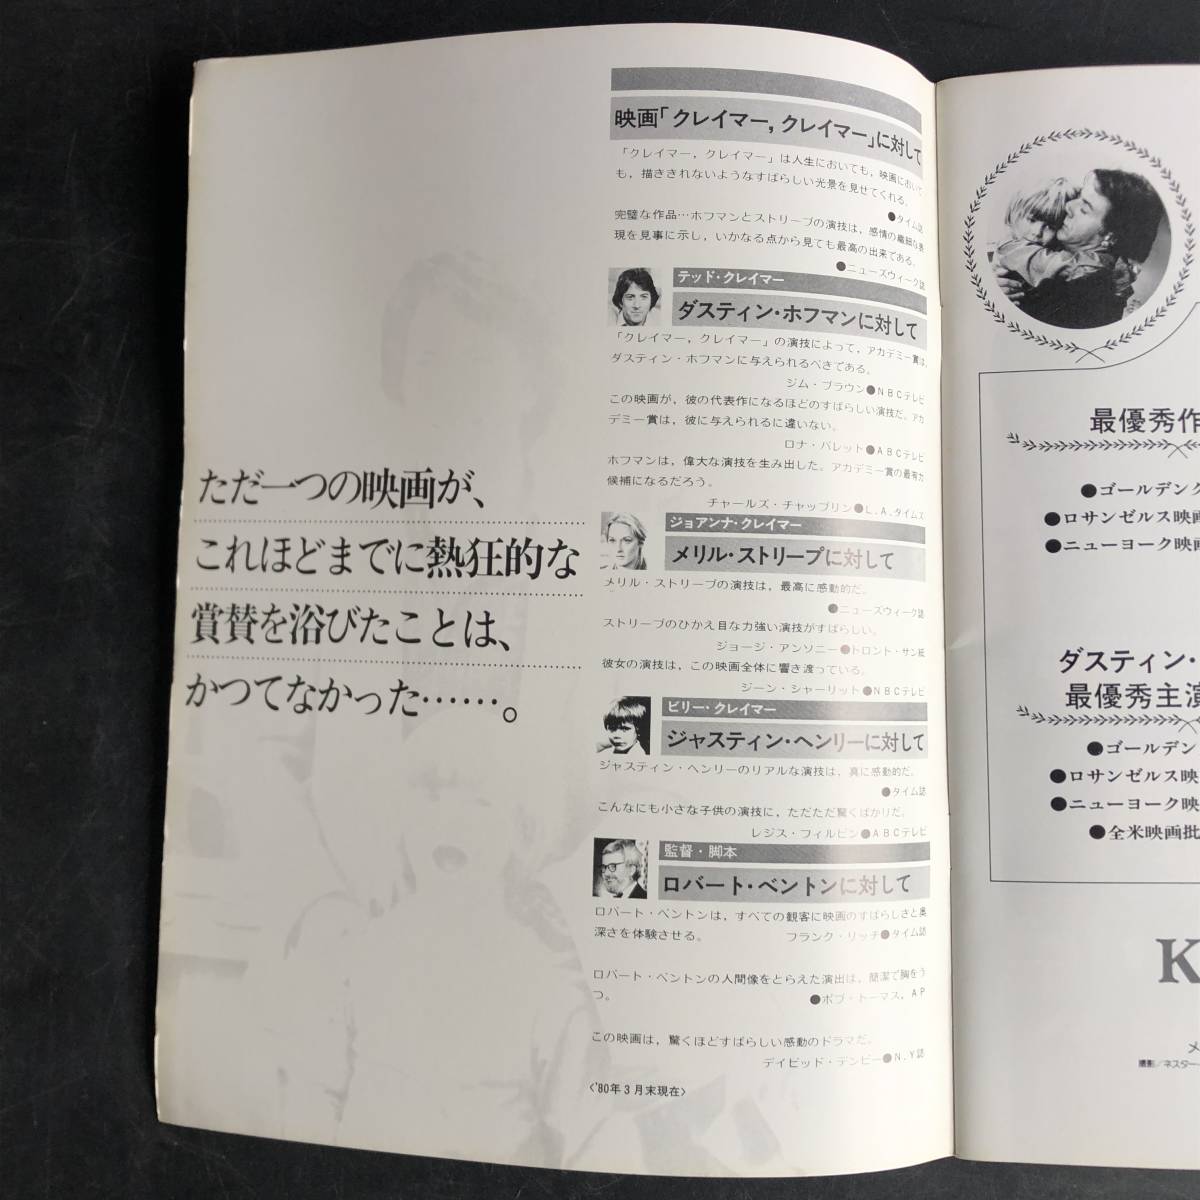 ただ一つの映画が、
これほどまでに熱狂的な
賞賛を浴びたことは、
かつてなかった……。
映画「クレイマー，クレイマー」に対して
「クレイマー，クレイマー」は人生においても，映画において
も，描ききれないようなすばらしい光景を見せてくれる。
●タイム誌
完璧な作品…ホフマンとストリープの演技は，感情の繊細な表
現を見事に示し，いかなる点から見ても最高の出来である。
●ニューズウィーク誌
テッド・クレイマー
ダスティン・ホフマンに対して
「クレイマー，クレイマー」の演技によって，アカデミー賞は，
ダスティン・ホフマンに与えられるべきである。
ジム・ブラウン●NBCテレビ
この映画が，彼の代表作になるほどのすばらしい演技だ。アカ
デミー賞は，彼に与えられるに違いない。
ロナ・バレット●ABCテレビ
ホフマンは，偉大な演技を生み出した。アカデミー賞の最有力
候補になるだろう。
チャールズ・チャップリン●L.A.タイムズ
ジョアンナ・クレイマー
メリル・ストリープに対して
メリル・ストリープの演技は，最高に感動的だ。
●ニューズウィーク誌
ストリープのひかえ目な力強い演技がすばらしい。
ジョージ・アンソニー●トロント・サン紙
彼女の演技は，この映画全体に響き渡っている。
ジーン・シャーリット●NBCテレビ
ビリー・クレイマー
ジャスティン・ヘンリーに対して
ジャスティン・ヘンリーのリアルな演技は，真に感動的だ。
●タイム誌
こんなにも小さな子供の演技に，ただただ驚くばかりだ。
レジス・フィルビン●ABCテレビ
監督・脚本
ロバート・ベントンに対して
ロバート・ベントンは，すべての観客に映画のすばらしさと奥
深さを体験させる。
フランク・リッチ●タイム誌
ロバート・ベントンの人間像をとらえた演出は，簡潔で胸をう
つ。
●ボブ・トーマス，AP
この映画は，驚くほどすばらしい感動のドラマだ。
デイビッド・デンビー●N.Y誌
〈'80年3月末現在〉
最優秀作
●ゴールデング
●ロサンゼルス映画
●ニューヨーク映画
ダスティン・
最優秀主演
●ゴールデン
●ロサンゼルス映
●ニューヨーク映
●全米映画批
K
メ
撮影/ネスター・